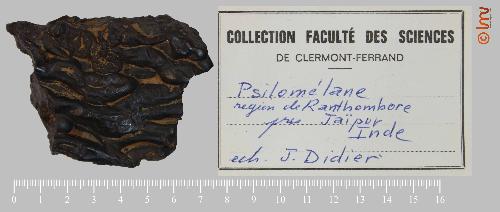 COLLECTION FACULTÉ DES SCIENCES
DE CLERMONT-FERRAND
Psilomélane
région de Ranthombore
près Jaïpur
Inde
ech. J. Didier
0 1 2 3 4 5 6 7 8 9 10 11 12 13 14 15 16